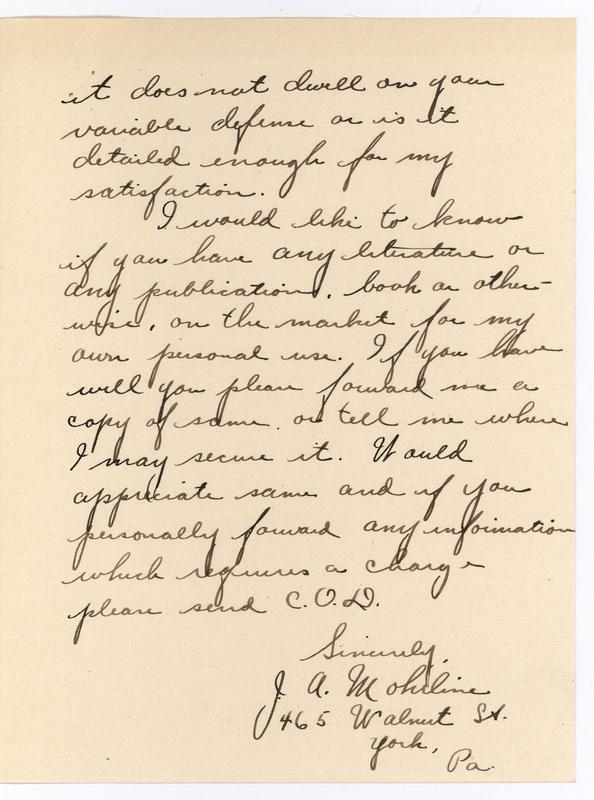 it does not dwell on your
variable defense or is it
detailed enough for my
satisfaction.
I would like to know
if you have any literature or
any publication, book or other-
wise, on the market for my
own personal use. If you have
will you please forward me a
copy of same. or tell me where
I may secure it. Would
appreciate same and if you
personally forward any information
which requires a charge
please send C.O.D.
Sincerely,
J. A.
465 Walnut St.
York,
Pa.